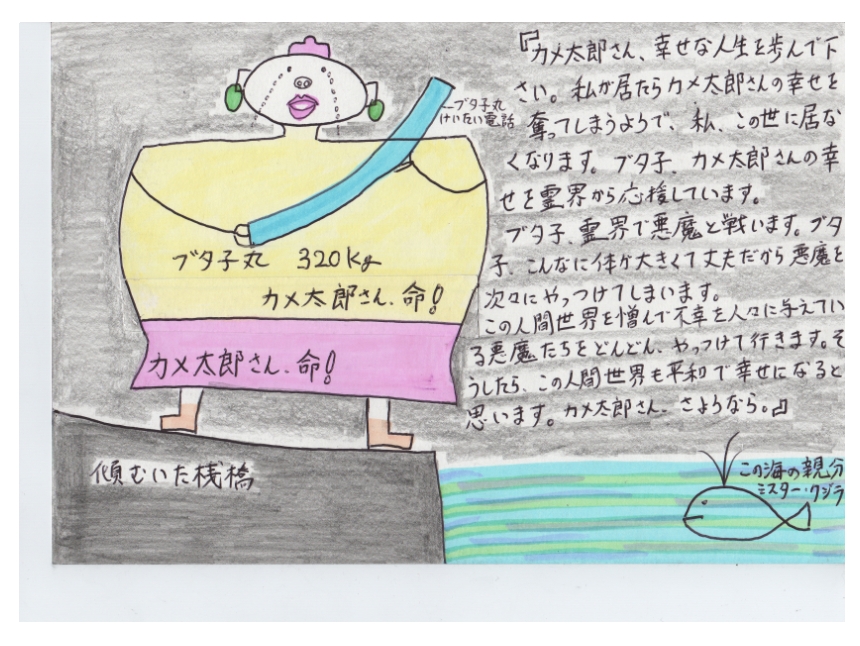 『カメ太郎さん、幸せな人生を歩んで下
さい。私が居たらカメ太郎さんの幸せを
奪ってしまうようで、私、この世に居な
くなります。ブタ子、カメ太郎さんの幸
せを霊界から応援しています。
ブタ子、霊界で悪魔と戦います。ブタ
子、こんなに体が大きくて丈夫だから悪魔を
次々にやっつけてしまいます。
この人間世界を憎んで不幸を人々に与えてい
る悪魔たちをどんどん、やっつけて行きます。そ
うしたら、この人間世界も平和で幸せになると
思います。カメ太郎さん、さようなら。』
←ブタ子丸
けいたい電話
ブタ子丸 320kg
カメ太郎さん、命!
カメ太郎さん、命!
傾むいた桟橋
この海の親分
ミスター・クジラ